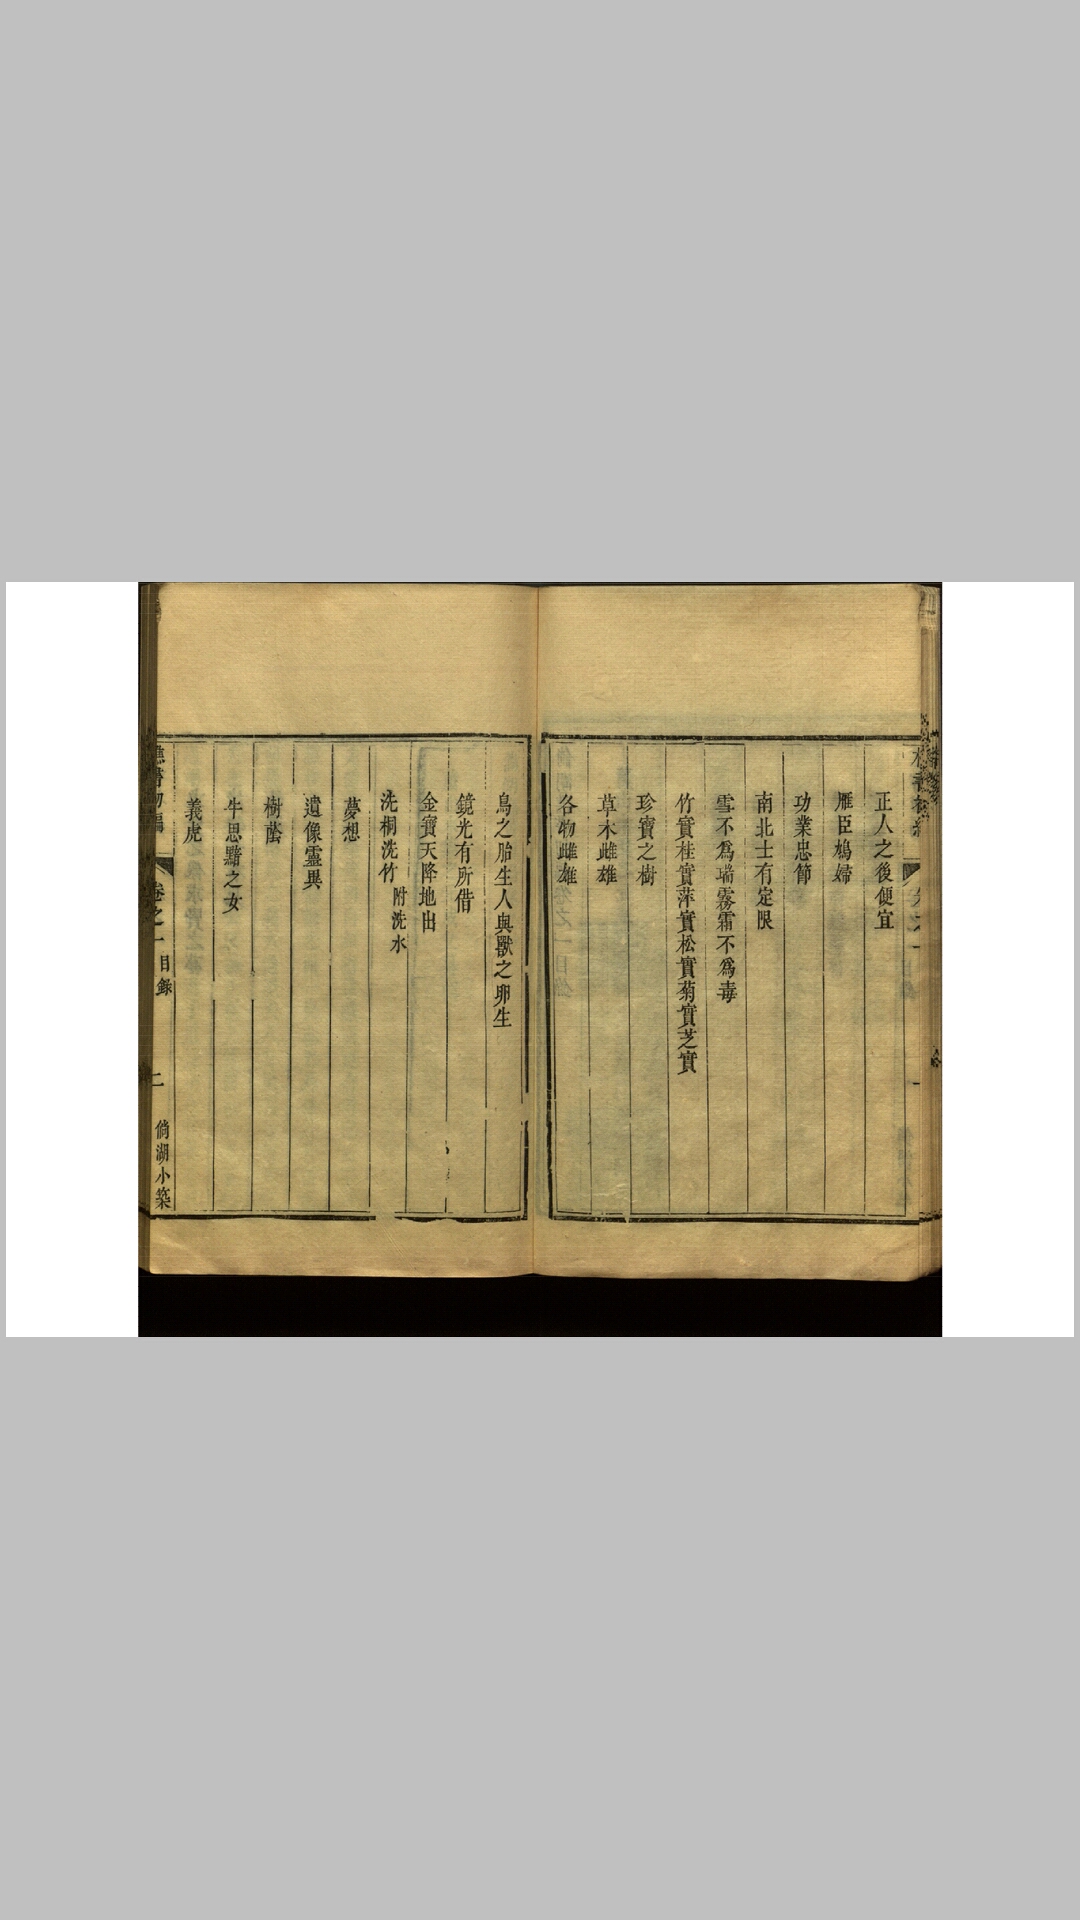 正人之後便宜
雁臣鳩婦
功業忠節
南北士有定限
雪不為瑞霧霜不為毒
竹實桂實萍實松實菊實芝實
珍寶之樹
草木雌雄
各物雌雄
鳥之胎生人與獸之卵生
鏡光有所借
金寶天降地出
洗桐洗竹 附洗水
夢想
遺像靈異
樹蔭
牛思黯之女
義虎
樵書初編 卷之一目錄 二 倘湖小築